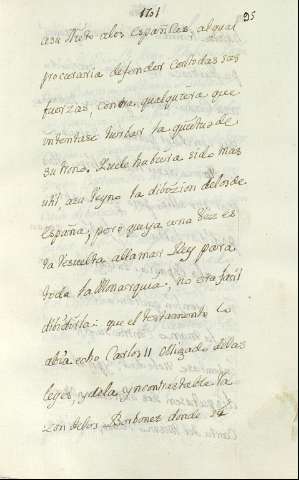 1701
95
a su Nieto a los Españoles, al qual
procuraria defender con todas sus
fuerzas, contra qualquiera que
intentase turbar la quietud de
su trono. Que le hubiera sido mas
util, a su Reyno la dibizion de los de
España, pero que ya una vez es
ta resuelta a llamar Rey para
toda la Monarquia, no era facil
dibidirla: que el testamento lo
abia echo Carlos II obligado de las
leyes, y de la yncontrastable ra
zon de los Borbones donde se